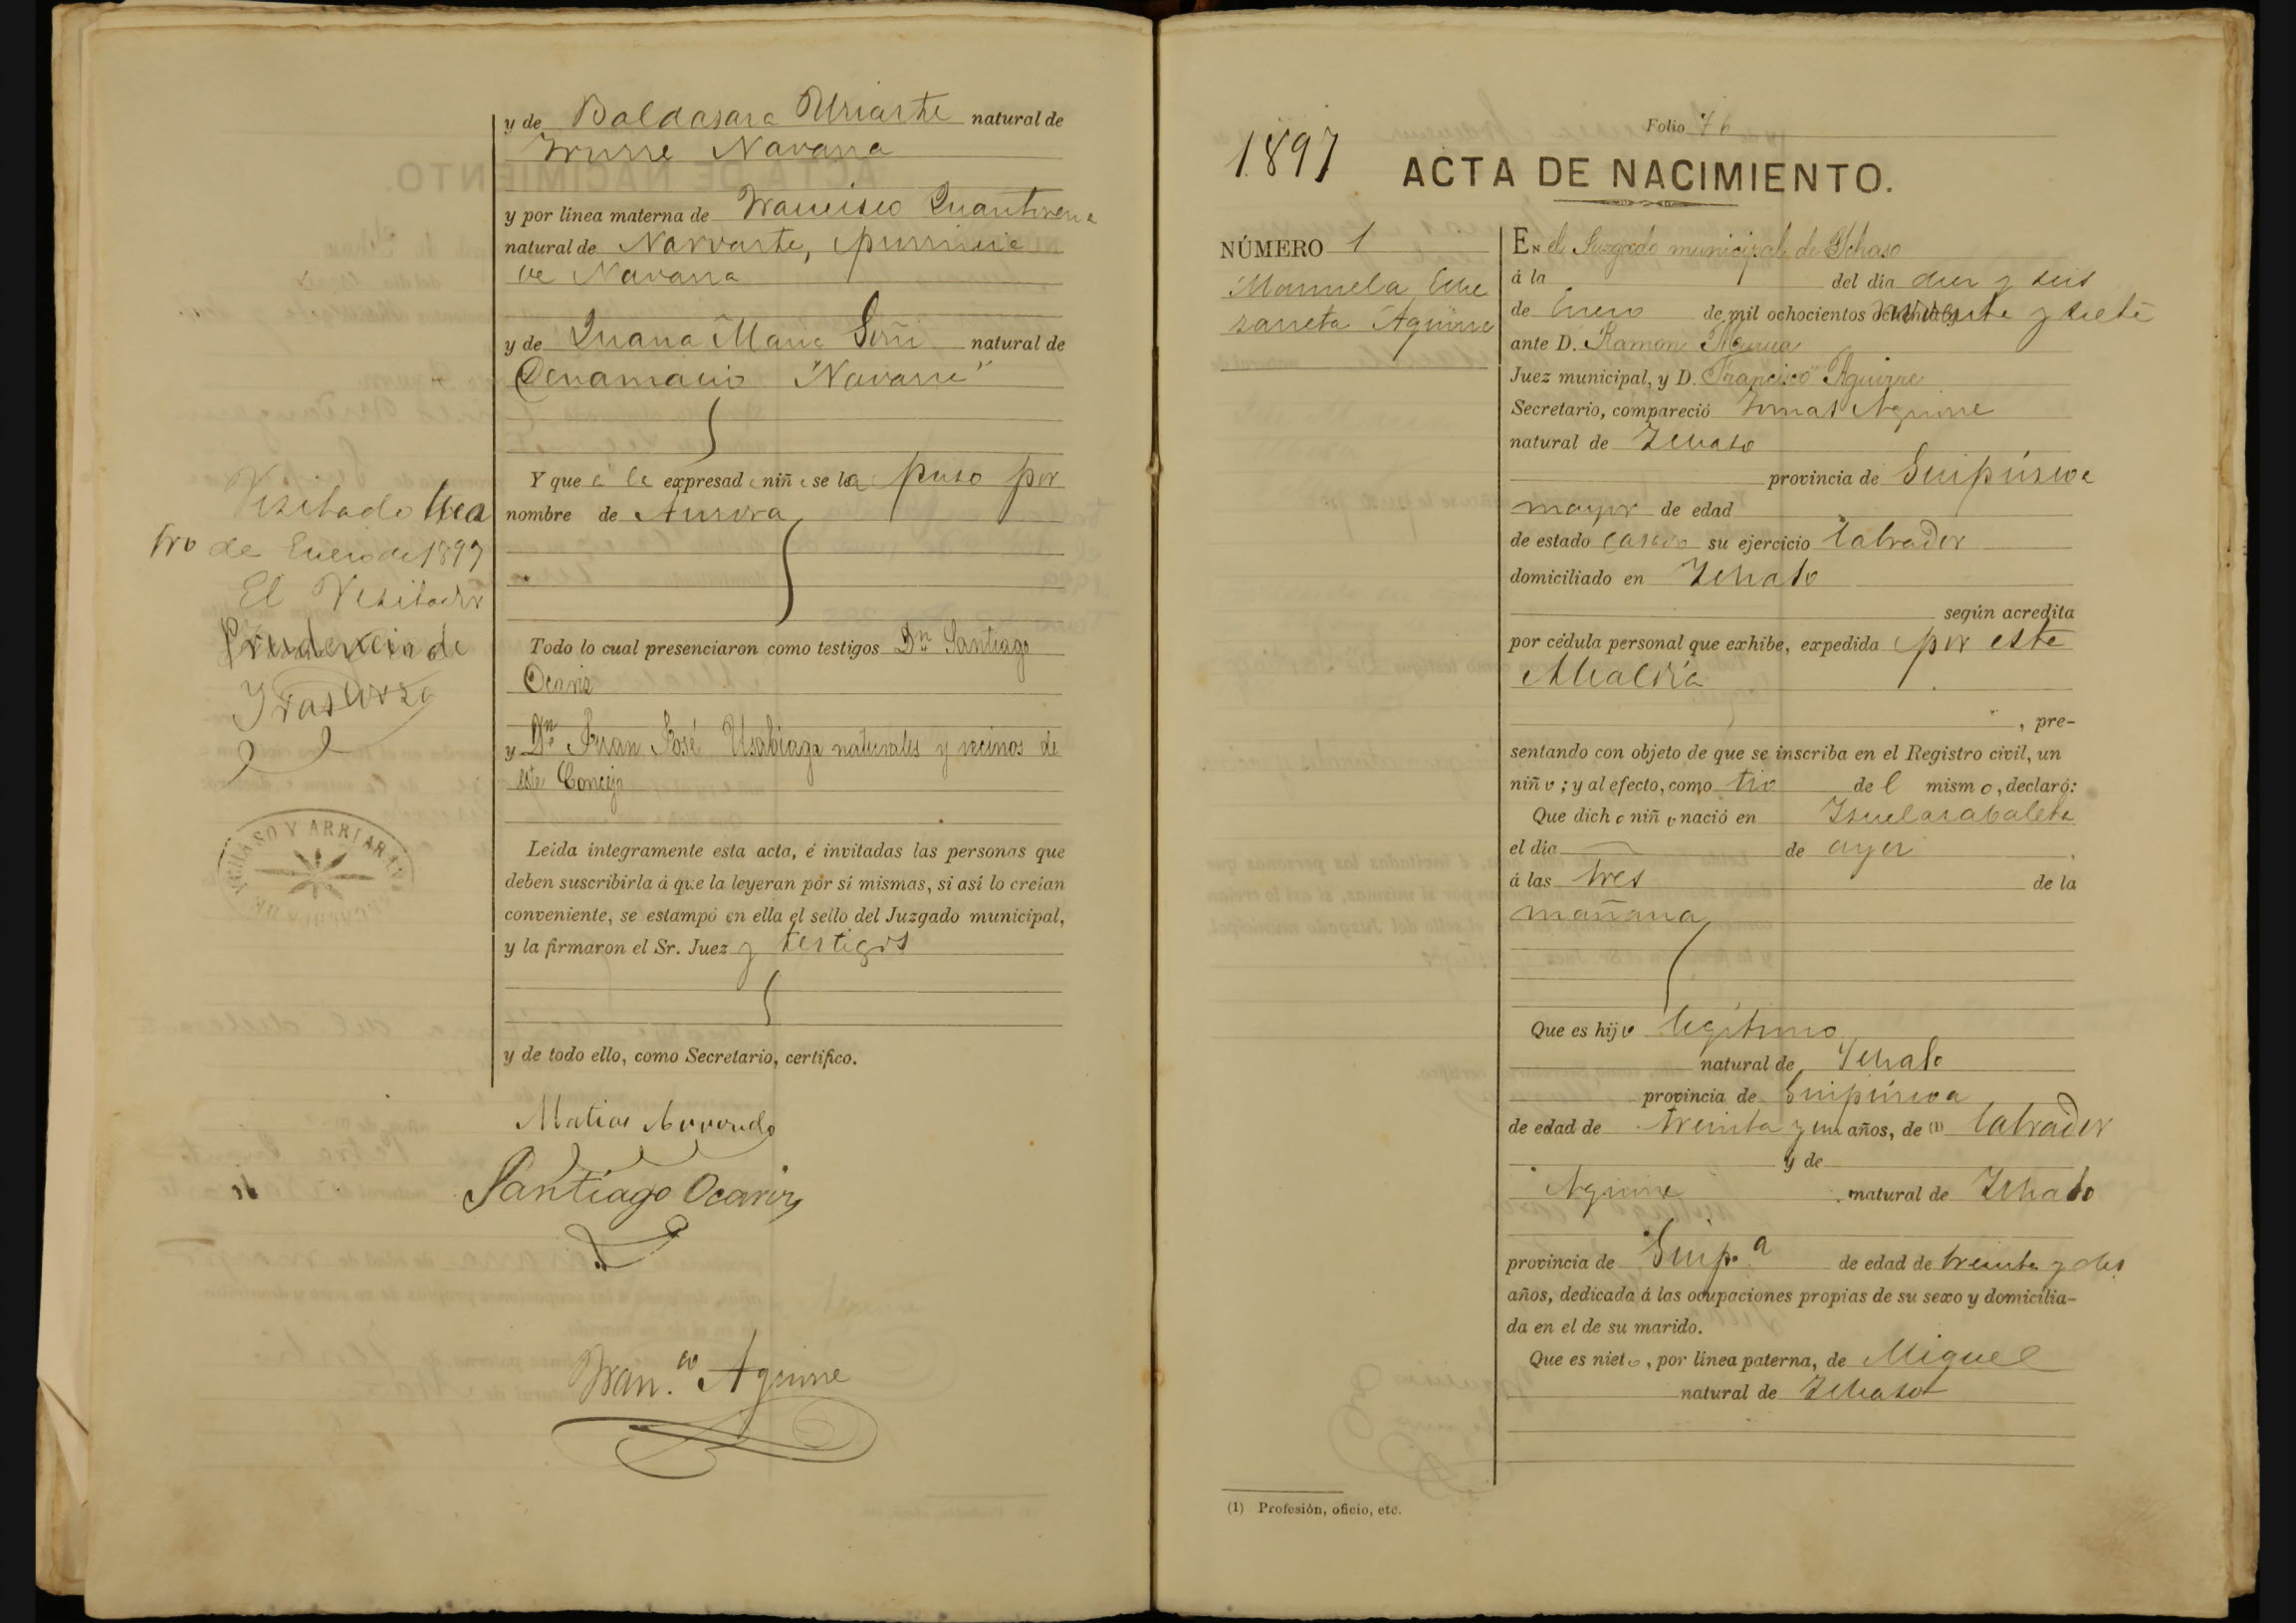 y de Baldasara Uriarte natural de
Navarra
y por linea materna de Francisco
natural de Narvarte, provincia
de Navarra
y de Juana Maria natural de
Navarra
Y que á la expresada niña se la puso por
nombre de Aurora
Visitado Cua
tro de Enero de 1897
El Visitador
Prudencio de
Irastorza
Todo lo cual presenciaron como testigos Dn Santiago
Ocariz
y Dn Juan José Usabiaga naturales y vecinos de
este Concejo
ICHASO Y ARRIARAN
Leída íntegramente esta acta, é invitadas las personas que
deben suscribirla á que la leyeran por sí mismas, si así lo creían
conveniente, se estampó en ella el sello del Juzgado municipal,
y la firmaron el Sr. Juez y testigos
y de todo ello, como Secretario, certifico.
Matias
Santiago Ocariz
Fran.co Aguirre
Folio 76
1897
ACTA DE NACIMIENTO.
NÚMERO 1
Manuela Eche
zarreta Aguirre
En el Juzgado municipal de Ychaso
á la del dia diez y seis
de Enero de mil ochocientos noventa y siete
ante D. Ramon
Juez municipal, y D. Francisco Aguirre
Secretario, compareció Tomas Aguirre
natural de Ichaso
provincia de Guipúzcoa
mayor de edad
de estado casado su ejercicio labrador
domiciliado en Ichaso
según acredita
por cédula personal que exhibe, expedida por esta
Alcaldía
, pre-
sentando con objeto de que se inscriba en el Registro civil, un
niño; y al efecto, como tio del mismo, declaró:
Que dicho niño nació en
el dia de ayer
á las tres de la
mañana
Que es hijo legítimo
natural de Ichaso
provincia de Guipúzcoa
de edad de treinta y un años, de (1) labrador
y de
Aguirre natural de Ichaso
provincia de Guip.a de edad de treinta y dos
años, dedicada á las ocupaciones propias de su sexo y domicilia-
da en el de su marido.
Que es nieto, por linea paterna, de Miguel
natural de Ichaso
(1) Profesión, oficio, etc.